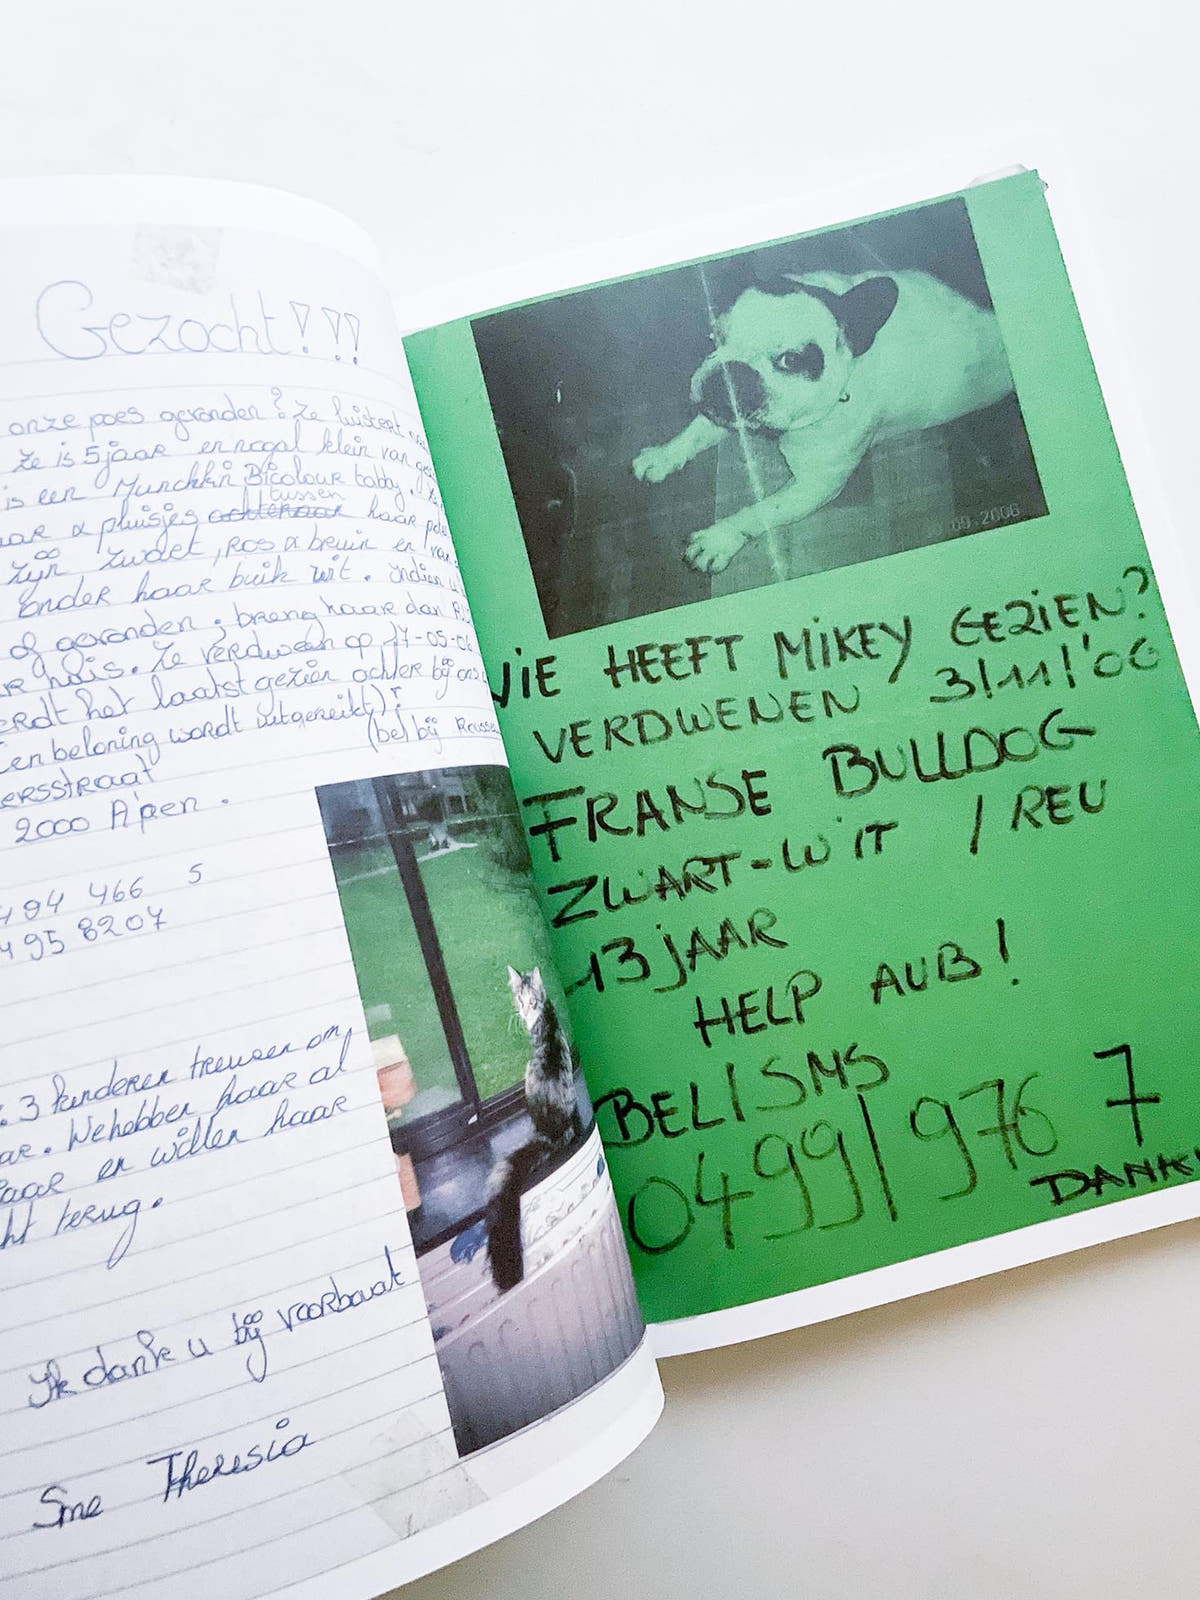 Gezocht!!!
onze poes gevonden? Ze luistert
Ze is 5 jaar en nogal klein van
is een Munchkin Bicolour tabby.
& pluisjes achteraar tussen haar
zijn zwart, ros & bruin en
onder haar buik wit. Indien u
of gevonden, breng haar dan
huis. Ze verdween op 17-05-06
het laatst gezien achter bij ons
Een beloning wordt uitgereikt)!
(be) bij
ersstraat
2000 A'pen.
494 466 5
495 8207
3 kinderen treuren om
We hebben haar al
jaar en willen haar
terug.
Ik dank u bij voorbaat
Sme Theresia
09.2006
WIE HEEFT MIKEY GEZIEN?
VERDWENEN 3/11/'06
FRANSE BULLDOG
ZWART-WIT / REU
13 JAAR
HELP AUB!
BEL/SMS
0499/976 7
DANK